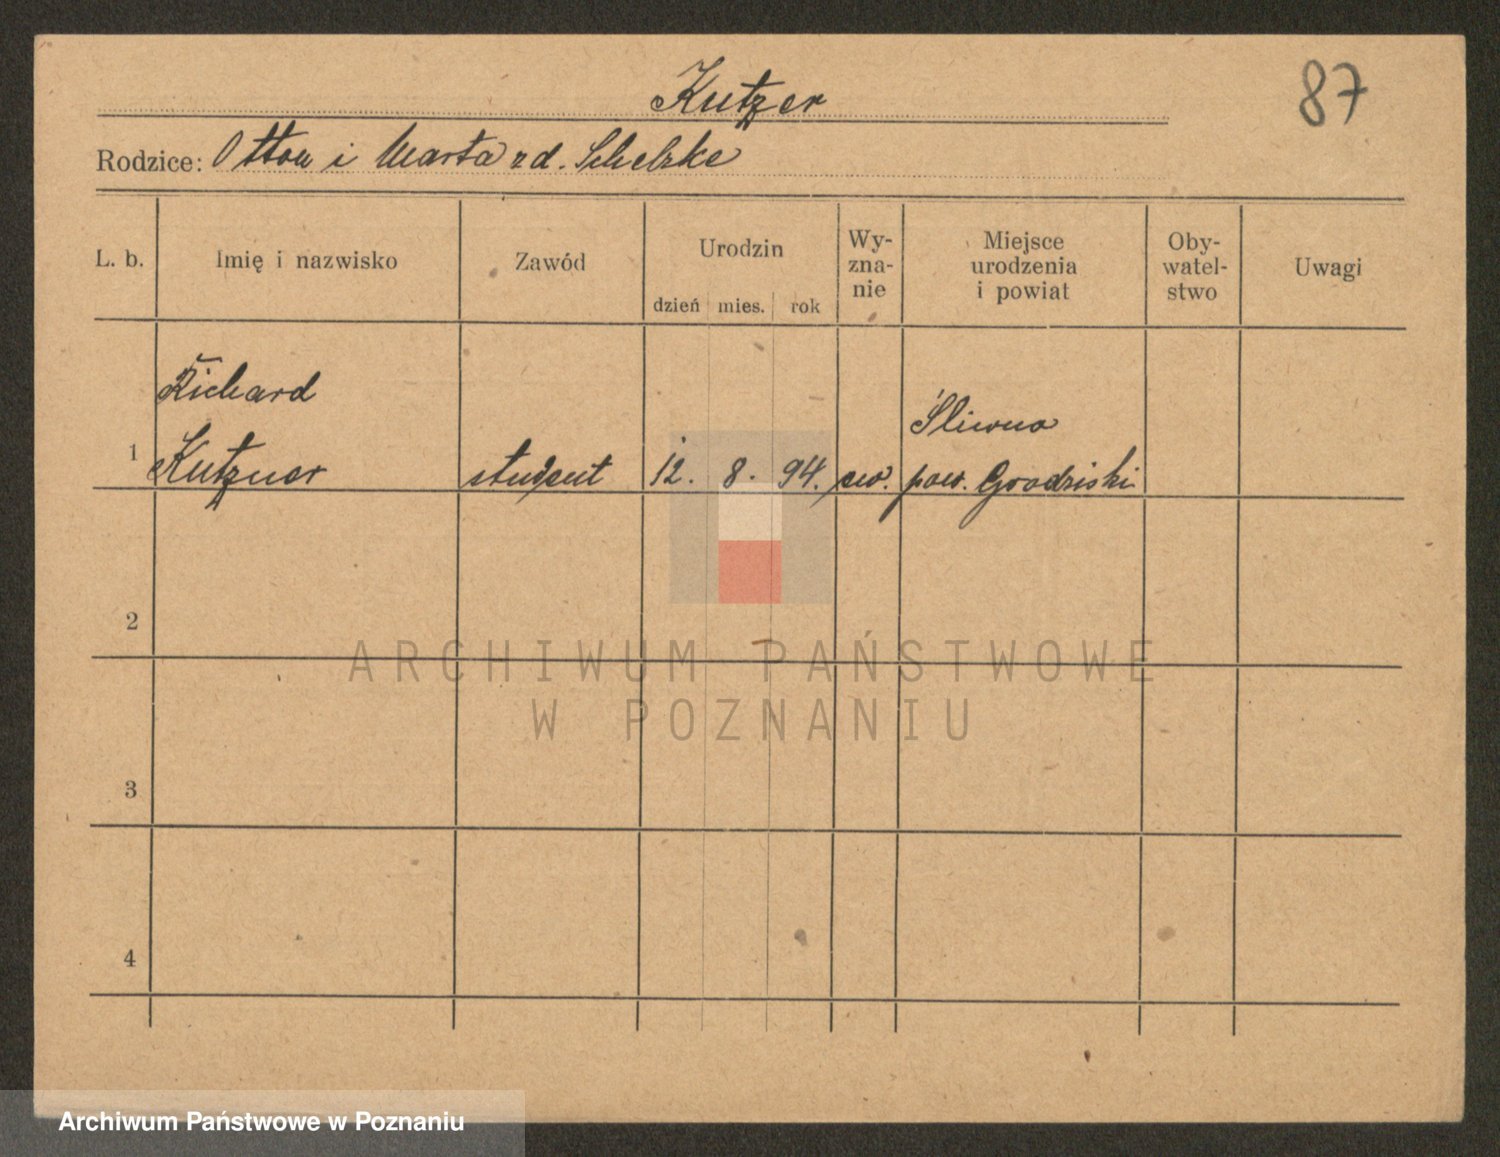 87
Kutzer
Rodzice: Otton i Marta zd. Schelzke
L. b.
Imię i nazwisko
Zawód
Urodzin
dzień mies. rok
Wy-
zna-
nie
Miejsce
urodzenia
i powiat
Oby-
watel-
stwo
Uwagi
1
Richard
Kutzner
student
12. 8. 94.
ew.
Śliwno
pow. Grodziski
2
3
4
ARCHIWUM PAŃSTWOWE
W POZNANIU
Archiwum Państwowe w Poznaniu